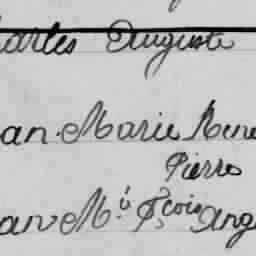 harles Auguste
an Marie Rene
Pierre
an M. Fçois Ang